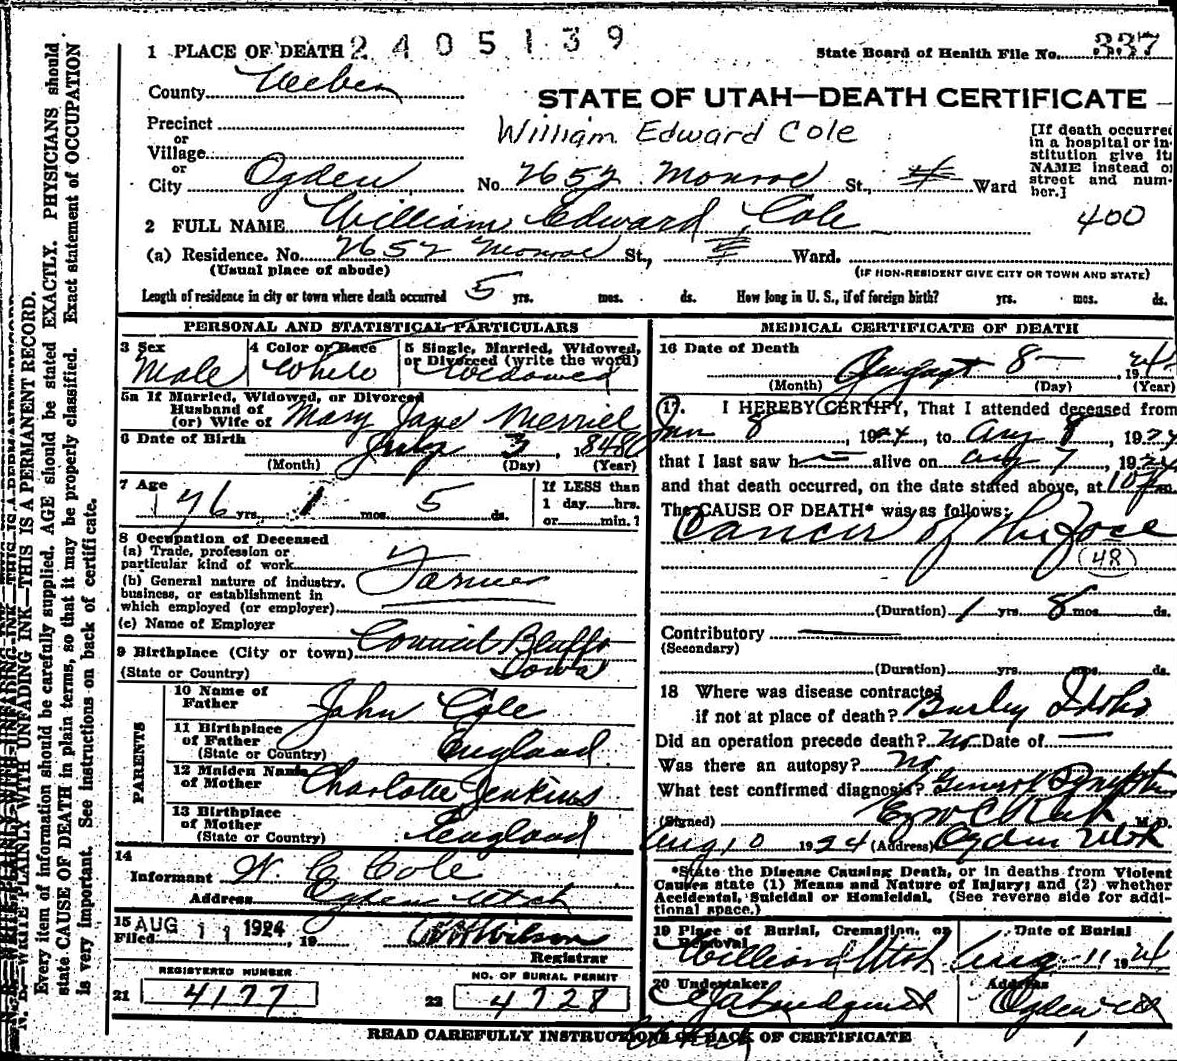 1 PLACE OF DEATH 2405139
State Board of Health File No. 337
County Weber
STATE OF UTAH—DEATH CERTIFICATE
Precinct
or
Village
or
City Ogden
William Edward Cole
No. 2652 Monroe St., Ward
[If death occurred
in a hospital or in-
stitution give its
NAME instead of
street and num-
ber.]
400
2 FULL NAME William Edward Cole
(a) Residence. No. 2652 Monroe St., Ward.
(Usual place of abode)
(IF NON-RESIDENT GIVE CITY OR TOWN AND STATE)
Length of residence in city or town where death occurred 5 yrs. mos. ds. How long in U. S., if of foreign birth? yrs. mos. ds.
PERSONAL AND STATISTICAL PARTICULARS
3 Sex
Male
4 Color or Race
White
5 Single, Married, Widowed,
or Divorced (write the word)
Widowed
5a If Married, Widowed, or Divorced
Husband of
(or) Wife of Mary Jane Merriel
6 Date of Birth July 3, 1848
(Month) (Day) (Year)
7 Age
76 yrs. 1 mos. 5 ds.
If LESS than
1 day hrs.
or min.?
8 Occupation of Deceased
(a) Trade, profession or
particular kind of work Farmer
(b) General nature of industry,
business, or establishment in
which employed (or employer)
(c) Name of Employer
9 Birthplace (City or town) Council Bluffs
(State or Country) Iowa
PARENTS
10 Name of
Father John Cole
11 Birthplace
of Father
(State or Country) England
12 Maiden Name
of Mother Charlotte Jenkins
13 Birthplace
of Mother
(State or Country) England
14
Informant W. C. Cole
Address Ogden Utah
15 AUG 11 1924
Filed , 19 Wilson
Registrar
REGISTERED NUMBER
21 4177
NO. OF BURIAL PERMIT
22 4728
MEDICAL CERTIFICATE OF DEATH
16 Date of Death August 8— 1924
(Month) (Day) (Year)
17. I HEREBY CERTIFY, That I attended deceased from
Jan 8, 1924, to Aug 8, 1924
that I last saw h alive on Aug 7, 1924
and that death occurred, on the date stated above, at 10 p m.
The CAUSE OF DEATH* was as follows:
Cancer of the Face
(48)
(Duration) 1 yrs 8 mos. ds.
Contributory
(Secondary)
(Duration) yrs. mos. ds.
18 Where was disease contracted
if not at place of death? Burley Idaho
Did an operation precede death? No Date of —
Was there an autopsy? No
What test confirmed diagnosis? General
(Signed) M.D.
Aug 10 1924 (Address) Ogden Utah
*State the Disease Causing Death, or in deaths from Violent
Causes state (1) Means and Nature of Injury; and (2) whether
Accidental, Suicidal or Homicidal. (See reverse side for addi-
tional space.)
19 Place of Burial, Cremation, or
Removal
Willard Utah
Date of Burial
Aug 11 1924
20 Undertaker
Address
Ogden Ut
READ CAREFULLY INSTRUCTIONS ON BACK OF CERTIFICATE
N. B.—WRITE PLAINLY WITH UNFADING INK—THIS IS A PERMANENT RECORD.
Every item of information should be carefully supplied. AGE should be stated EXACTLY. PHYSICIANS should
state CAUSE OF DEATH in plain terms, so that it may be properly classified. Exact statement of OCCUPATION
is very important. See instructions on back of certificate.